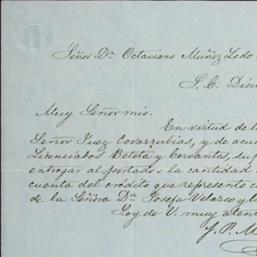 Señor Dn. Octaviano Muñoz Ledo
S. C. Dici
Muy Señor mio.
En virtud de lo
Señor Juez Covarrubias, y de acue
Licenciados Beteta y Cervantes, sup
entregar al portador la cantidad
cuenta del crédito que represento c
de la Señora Da. Josefa Velasco y
Soy de V. muy aten
J. P. M